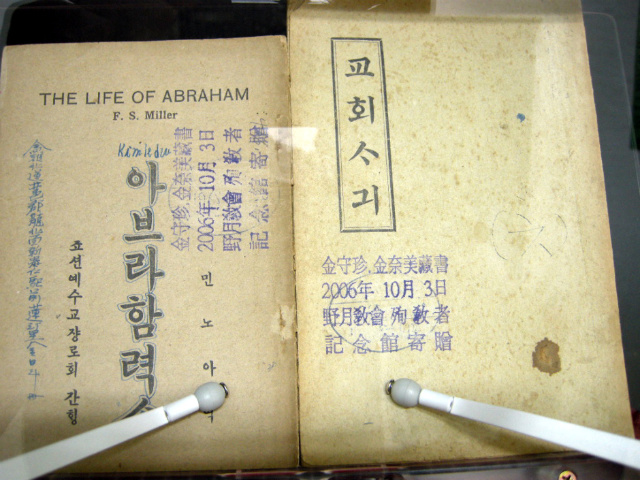 THE LIFE OF ABRAHAM
F. S. Miller
아브라함력
민노아
죠션예수교쟝로회 간힝
金守珍, 金奈美藏書
2006年 10月 3日
野月敎會 殉敎者
記念館寄贈
교회ᄉ긔
金守珍, 金奈美藏書
2006年 10月 3日
野月敎會 殉敎者
記念館寄贈